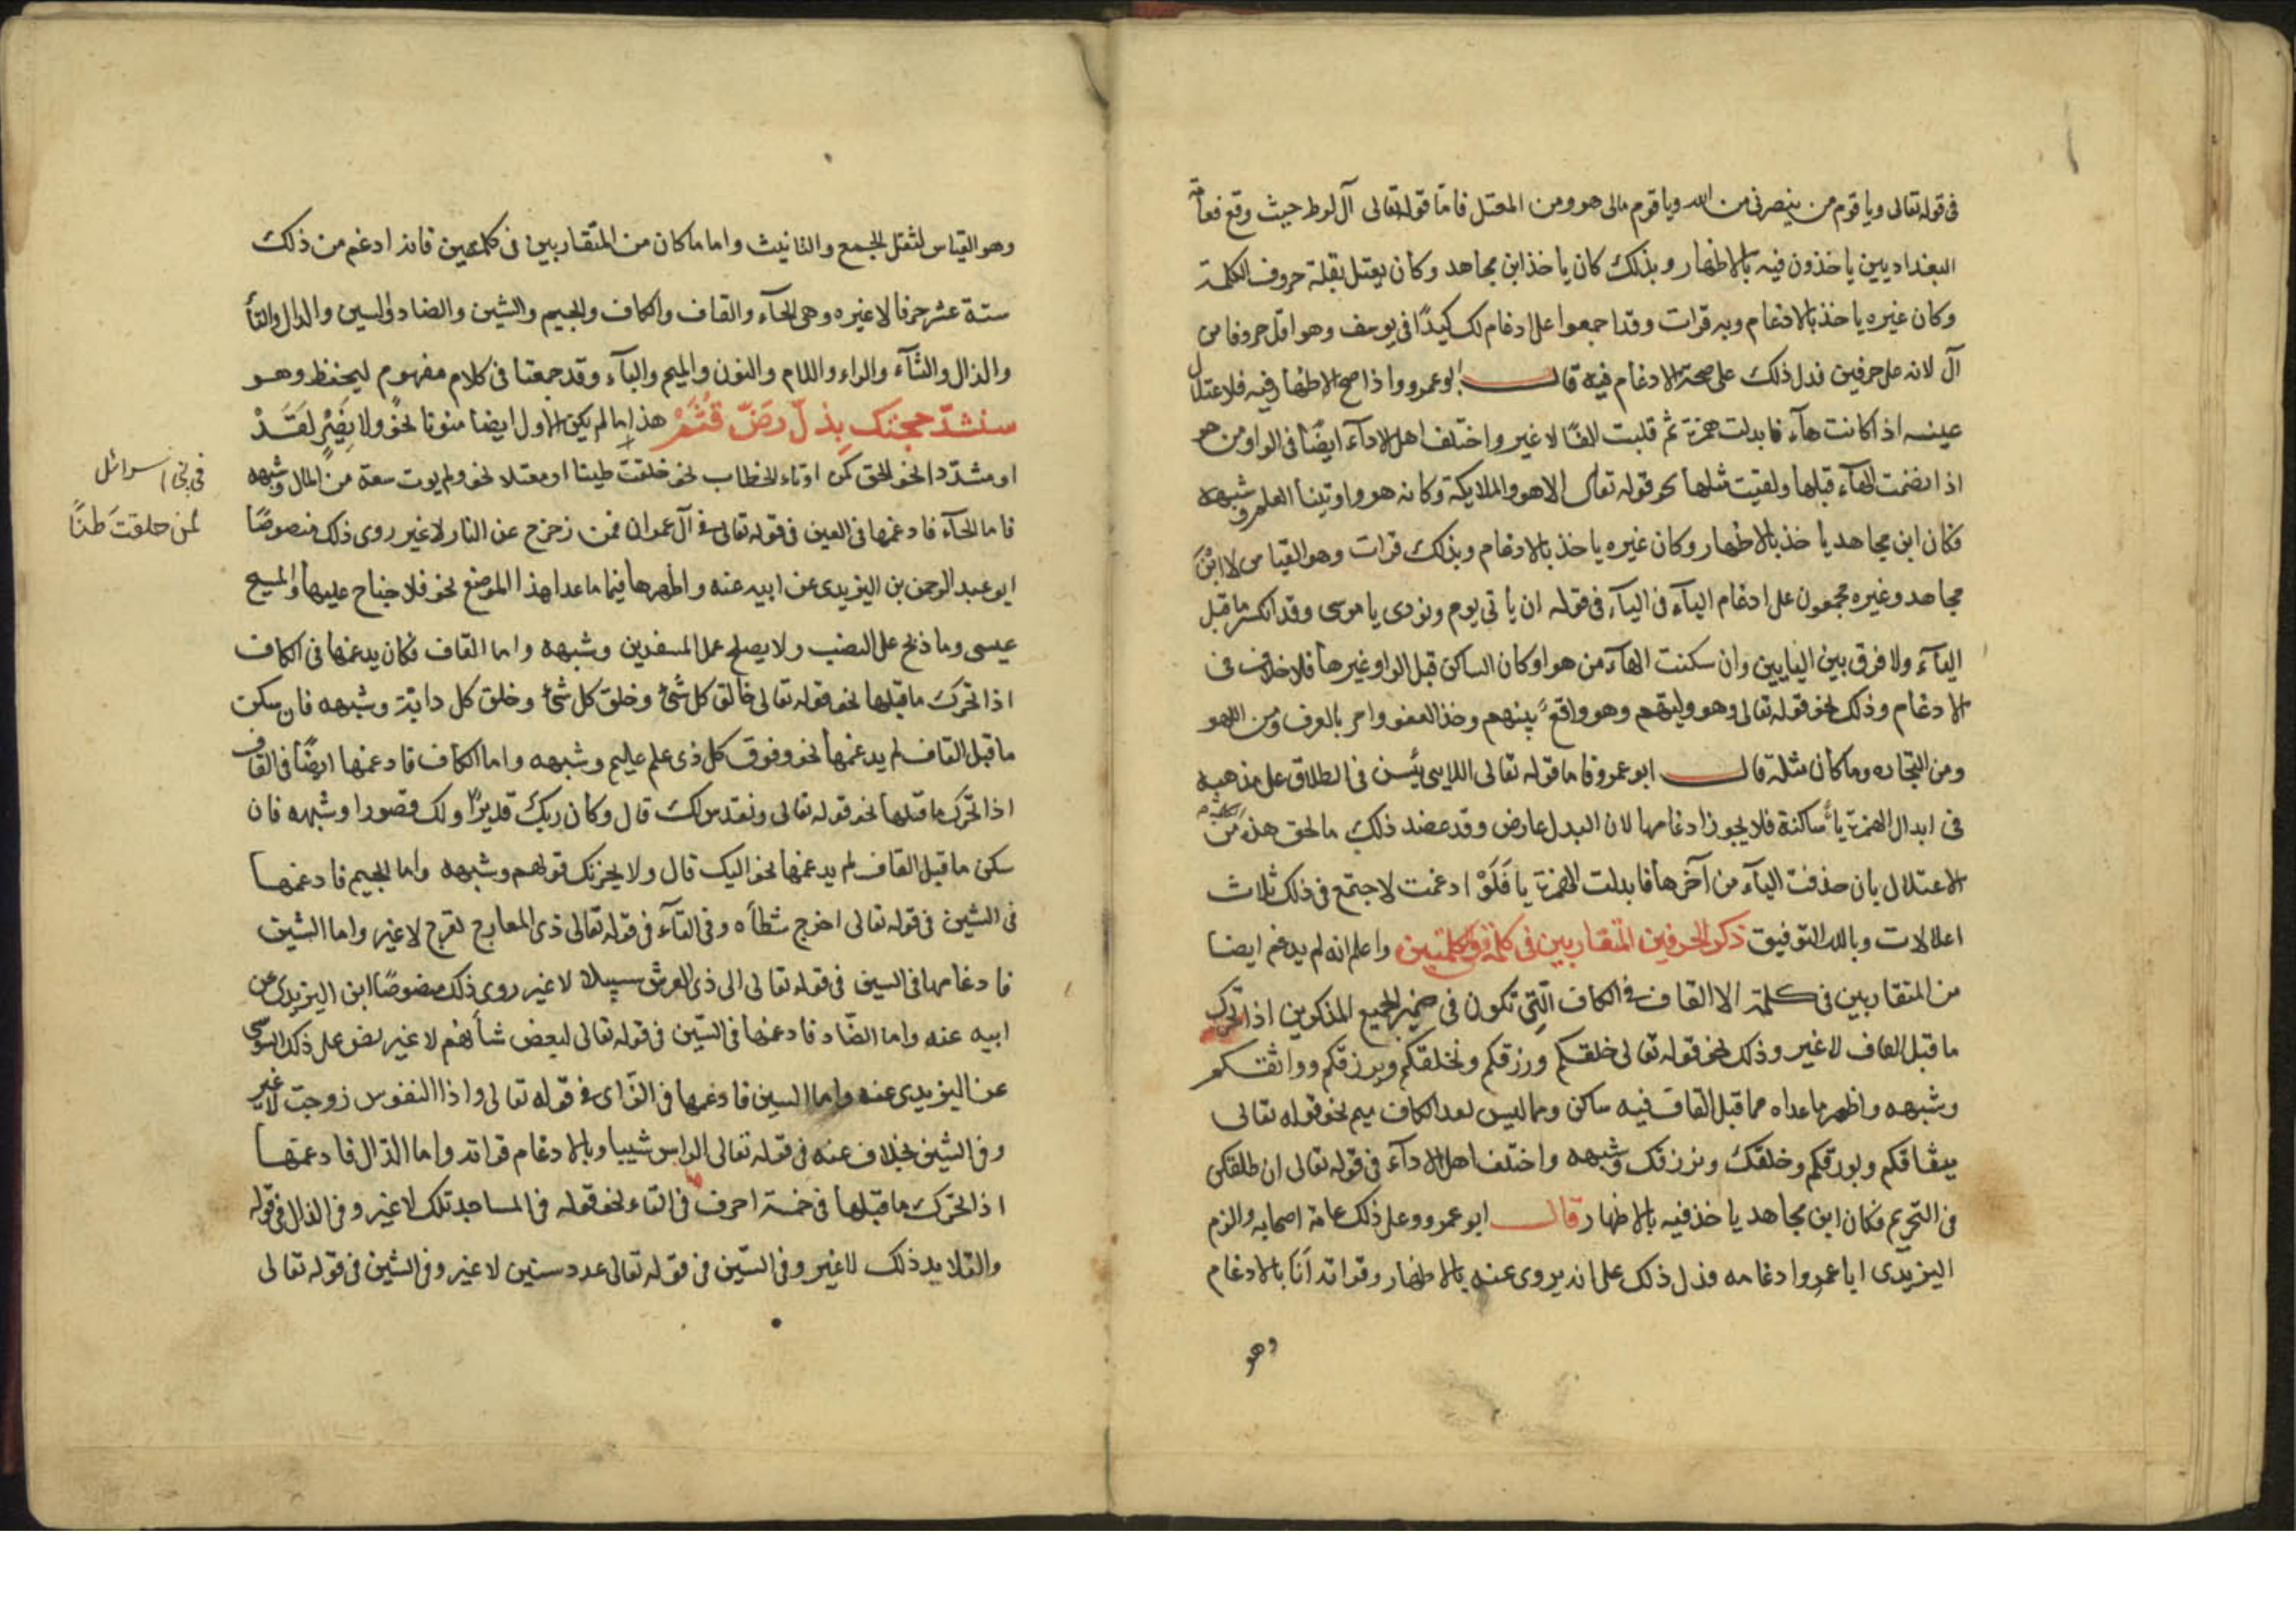 فى قوله تعالى ويا قوم من ينصرنى من الله ويا قوم مالى هو ومن المعتل فاما قوله تعالى آل لوط حيث وقع فعامة
البغداديين ياخذون فيه بالاظهار وبذلك كان ياخذ ابن مجاهد وكان يعتل بقلة حروف الكلمة
وكان غيره ياخذ بالادغام وبه قرات وقد اجمعوا على ادغام لك كيدًا فى يوسف وهو اقل حروفا من
آل لانه على حرفين فدل ذلك على صحة الادغام فيه قال ابو عمرو واذا صح الاظهار فيه فلاعتلال
عينه اذا كانت هآء فابدلت همزة ثم قلبت الفًا لا غير واختلف اهل الادآء ايضًا فى الواو من هو
اذا انضمت الهآء قبلها ولقيت مثلها نحو قوله تعالى الا هو والملايكة وكانه هو واوتينا العلم وشبهه
فكان ابن مجاهد ياخذ بالاظهار وكان غيره ياخذ بالادغام وبذلك قرات وهو القياس لان ابن
مجاهد وغيره مجمعون على ادغام اليآء فى اليآء فى قوله ان ياتى يوم ونودى يا موسى وقد انكسر ما قبل
اليآء ولا فرق بين اليايين وان سكنت الهآء من هو او كان الساكن قبل الواو غيرها فلا خلاف فى
الادغام وذلك نحو قوله تعالى وهو وليهم وهو واقعٌ بهم وخذ العفو وامر بالعرف ومن اللهو
ومن التجاره وما كان مثله قال ابو عمرو فاما قوله تعالى اللاىى يئسن فى الطلاق على مذهبه
فى ابدال الهمزة يآً ساكنة فلا يجوز ادغامها لان البدل عارض وقد عضد ذلك ما لحق هذه من
الاعتلال بان حذفت اليآء من آخرها فابدلت الهمزة يا فَلَوْ ادغمت لاجتمع فى ذلك ثلاث
اعلالات وبالله التوفيق ذكر الحرفين المتقاربين فى كلمة وفى كلمتين واعلم انه لم يدغم ايضا
من المتقاربين فى كلمة الا القاف فى الكاف التى تكون فى ضمير الجميع المذكرين اذا تحرك
ما قبل القاف لا غير وذلك نحو قوله تعالى خلقكم ورزقكم ونخلقكم ويرزقكم وواثقكم
وشبهه واظهر ما عداه مما قبل القاف فيه ساكن ومما ليس بعد الكاف ميم نحو قوله تعالى
ميثاقكم وبورقكم وخلقك ونرزقك وشبهه واختلف اهل الادآء فى قوله تعالى ان طلقكن
فى التحريم فكان ابن مجاهد ياخذ فيه بالاظهار قال ابو عمرو وعلى ذلك عامة اصحابه والزم
اليزيدى ابا عمرو ادغامه فدل ذلك على انه يروى عنه بالاظهار وقراته اَنَا بالادغام
وهو
وهو القياس لثقل الجمع والتانيث واما ما كان من المتقاربين فى كلمتين فانه ادغم من ذلك
ستة عشر حرفا لا غيره وهى الحآء والقاف والكاف والجيم والشين والضاد والسين والدال والتآء
والذال والثآء والراء واللام والنون والميم والبآء وقد جمعتها فى كلام مفهوم ليحفظ وهو
سنشدّ حجتك بذلّ رضّ قُثَمْ هذا ما لم يكن الاول ايضا منونا نحو ولا نصيرٍ لقَدْ
او مشدّدا نحو الحق كمن او تاء الخطاب نحو خلقت طينا او معتلا نحو ولم يوت سعة من المال وشبهه
فاما الحآء فادغمها فى العين فى قوله تعالى فى آل عمران فمن زحزح عن النار لا غير روى ذلك منصوصًا
فى بنى اسرائل
لمن خلقتَ طينًا
ابو عبد الرحمن بن اليزيدى عن ابيه عنه واظهرها فيما عدا هذا الموضع نحو فلا جناح عليهما والمسيح
عيسى وما ذبح على النصب ولا يصلح عمل المفسدين وشبهه واما القاف فكان يدغمها فى الكاف
اذا تحرك ما قبلها نحو قوله تعالى خالق كل شئ وخلق كل شئ وخلق كل دابة وشبهه فان سكن
ما قبل القاف لم يدغمها نحو وفوق كل ذى علم عليم وشبهه واما الكاف فادغمها ايضًا فى القاف
اذا تحرك ما قبلها نحو قوله تعالى ونقدس لك قال وكان ربك قديرًا ولك قصورا وشبهه فان
سكن ما قبل القاف لم يدغمها نحو اليك قال ولا يحزنك قولهم وشبهه واما الجيم فادغمها
فى الشين فى قوله تعالى اخرج شطأه وفى التآء فى قوله تعالى ذى المعارج تعرج لا غير واما الشين
فادغامها فى السين فى قوله تعالى الى ذى العرش سبيلا لا غير روى ذلك منصوصًا ابن اليزيدى عن
ابيه عنه واما الضّاد فادغمها فى الشين فى قوله تعالى لبعض شأنهم لا غير نص على ذلك السوسى
عن اليزيدى عنه واما السين فادغمها فى الزّاى فى قوله تعالى واذا النفوس زوجت لا غير
وفى الشين بخلاف عنه فى قوله تعالى الراس شيبا وبالادغام قراته واما الدال فادغمها
اذا تحرك ما قبلها فى خمسة احرف فى التاء نحو قوله فى المساجد تلك لا غير وفى الذال فى قوله
والقلايد ذلك لا غير وفى السّين فى قوله تعالى عدد سنين لا غير وفى الشين فى قوله تعالى